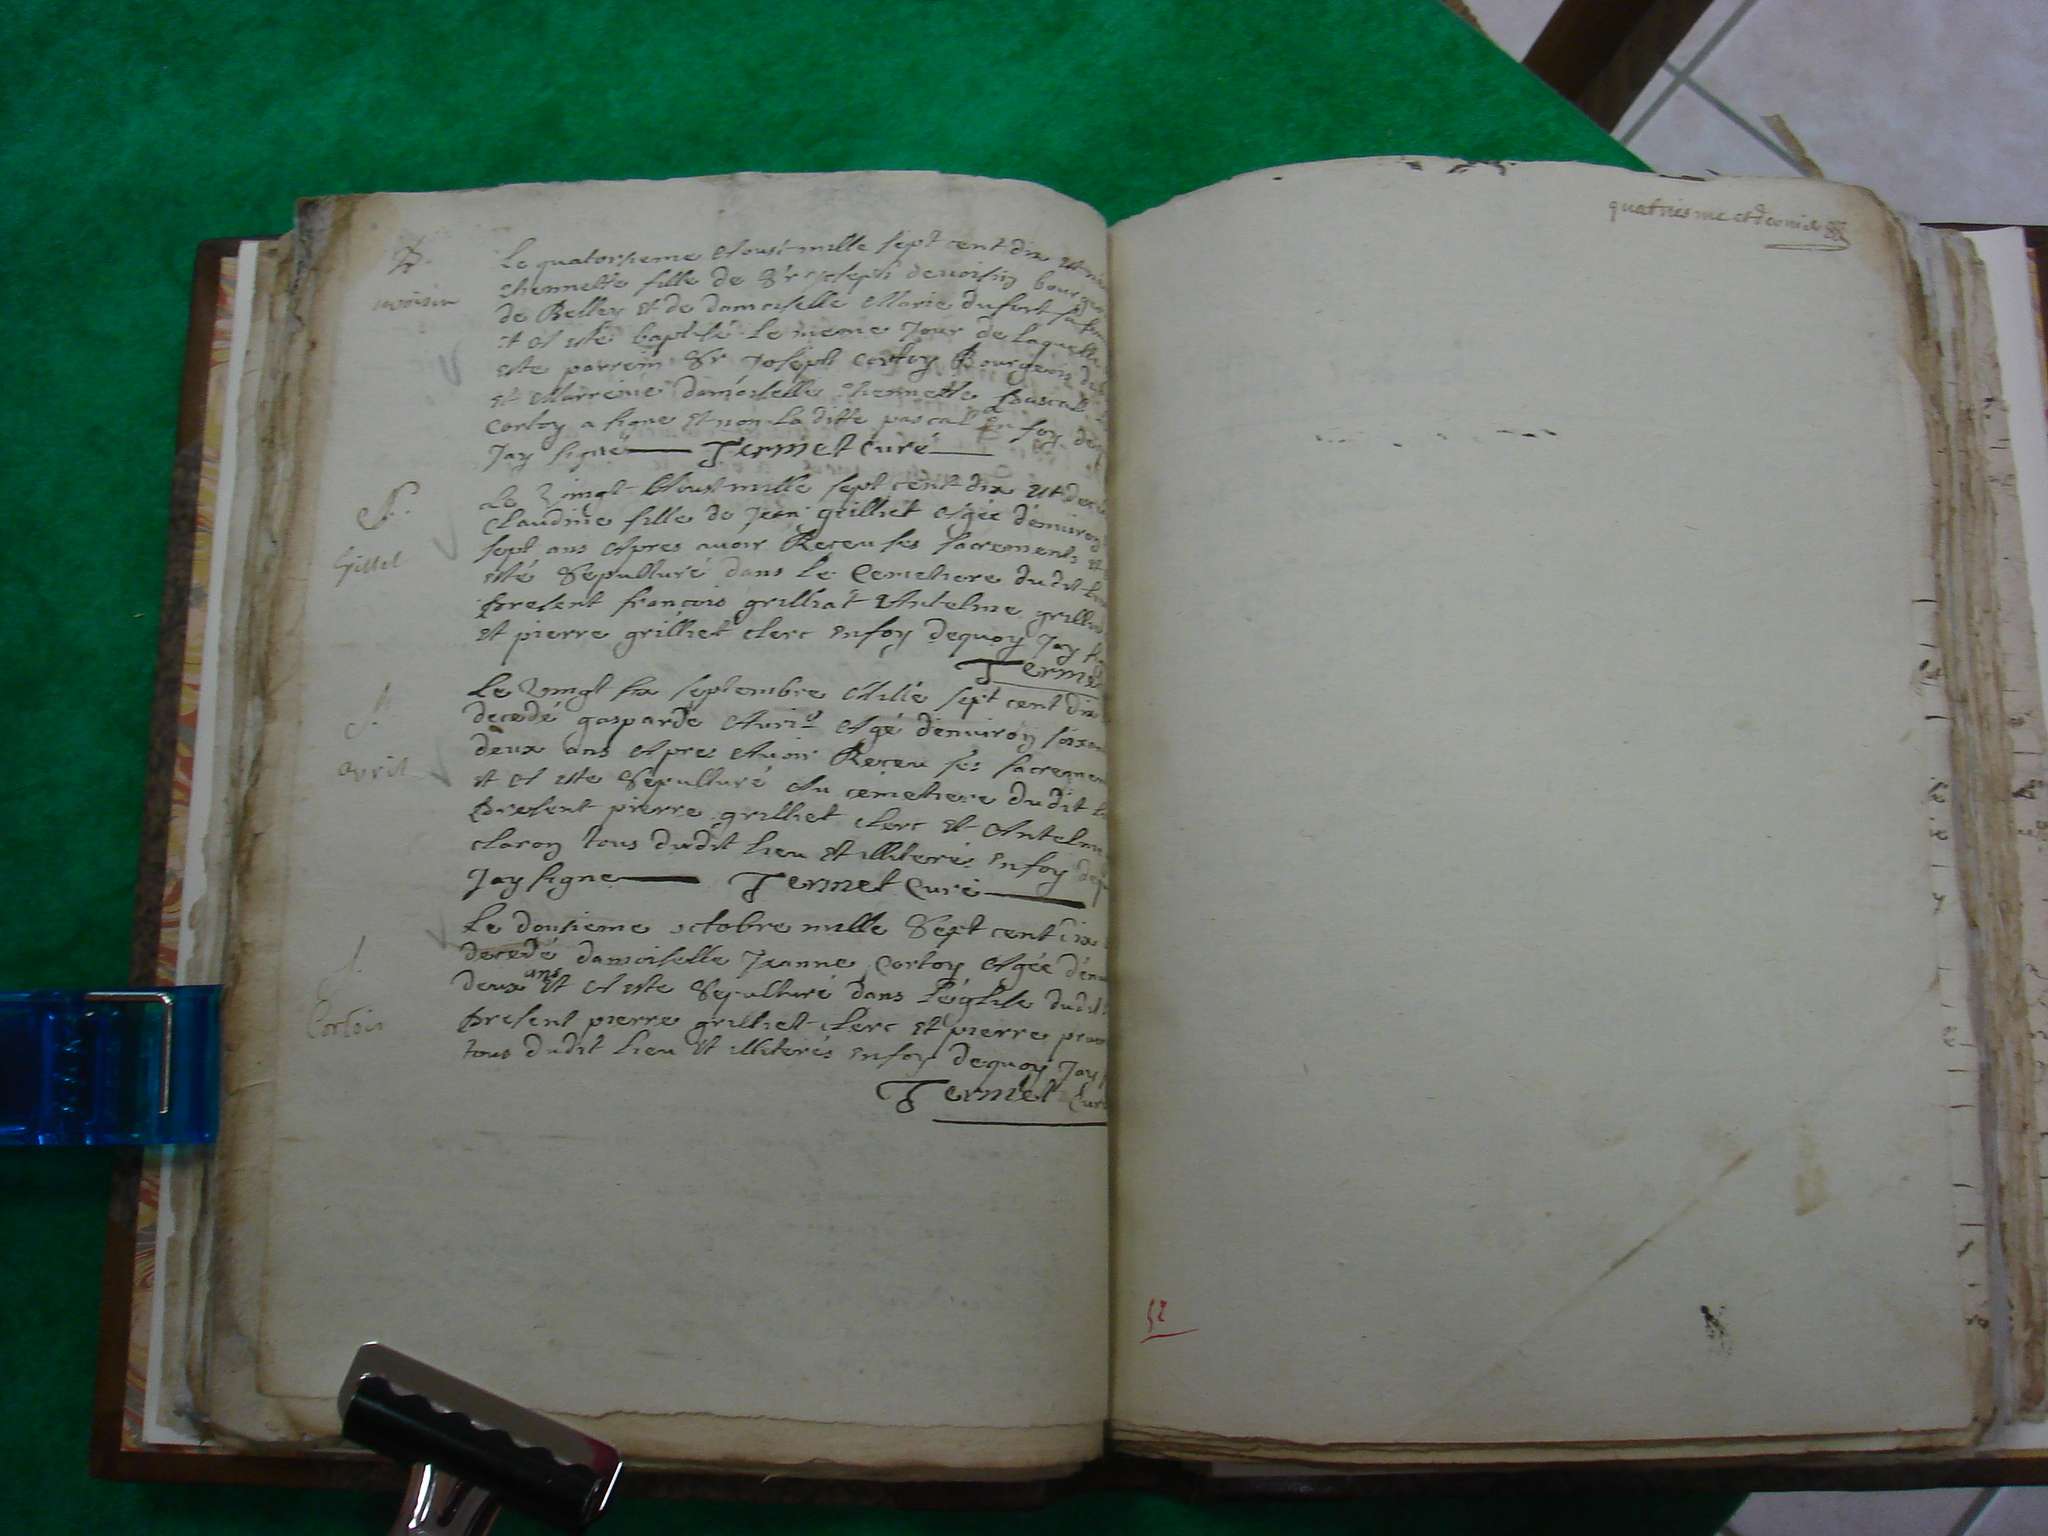 B.
Le quatorsieme Aoust mille sept cent dix et
voisin
thennette fille de Sr Joseph devoisin bourgeois
de Belley et de damoiselle Marie dufort sa
et A esté baptisé le meme Jour de laquelle
esté parrein Sr Joseph Cortoy Bourgeois de
et Marreine damoiselle thennette Pascal
Cortoy a signe et non la ditte pascal En foy de
Jay signé Termet Curé
S.
Le Vingt Aoust mille sept cent dix et
Claudine fille de Jean grilliet Agée d'environ
grillet
sept ans Apres avoir Receu ses sacrements et
esté Sepulturé dans le Cemetiere dudit
present françois grilliat Antelme
et pierre grilliet clerc En foy dequoy Jay
Termet
S.
Le Vingt six septembre Mille sept cent dix
decedé gasparde Avri Agé denviron
avril
deux ans Apre Avoir Receu ses sacrement
et A este Sepulturé Au cemetiere dudit
present pierre grilliet clerc et Antelme
claron tous dudit lieu et illiterés En foy deq
Jay signe Termet Curé
Le dousieme octobre mille Sept cent dix
S.
decedé damoiselle Jeanne Cortoy Agée d'en
deux ans et A este Sepulturé dans l'église dudit
Cortois
present pierre grilliet clerc et pierre
tous dudit lieu et illiterés En foy dequoy Jay
Termet Curé
quatriesme et dernier
52